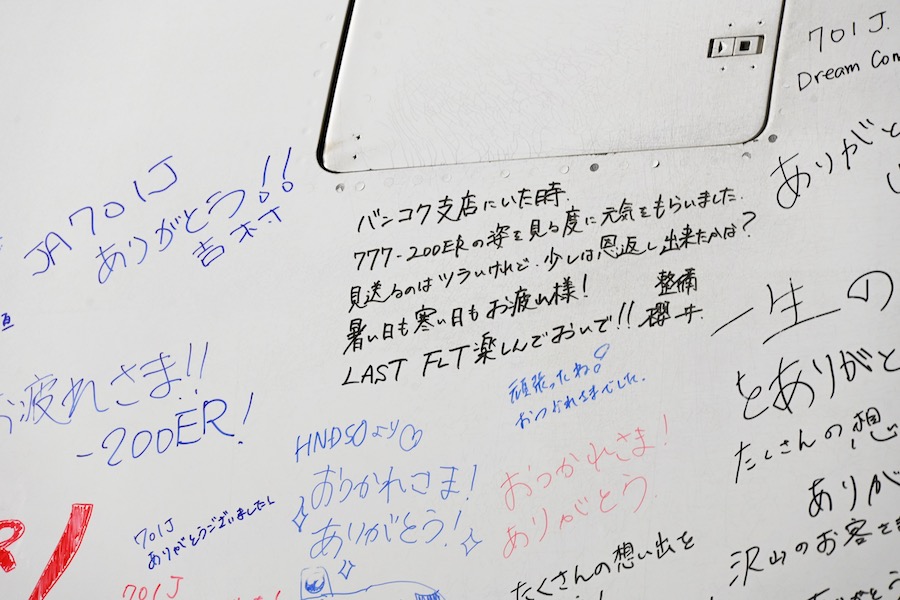 701J.
Dream Com
ありがと
JA701J
ありがとう!!
吉村
バンコク支店にいた時.
777-200ERの姿を見る度に元気をもらいました.
見送るのはツラいけれど、少しは恩返し出来たかは?
暑い日も寒い日もお疲れ様!
LAST FLT楽しんでおいで!!
整備
櫻井.
疲れさま!!
-200ER!
一生の
をありがと
たくさんの想い
ありが
沢山のお客さま
頑張ったね
おつかれさまでした.
HNDSOより
おつかれさま!
ありがとう!
おつかれさま!
ありがとう.
701J
ありがとうございました
701J
たくさんの想い出を